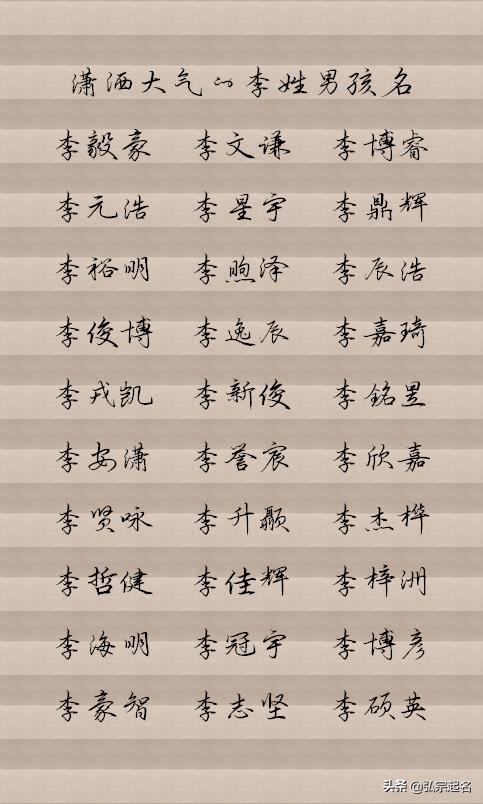 潇洒大气的李姓男孩名
李毅豪 李文谦 李博睿
李元浩 李星宇 李鼎辉
李裕明 李煦泽 李辰浩
李俊博 李逸辰 李嘉琦
李戎凯 李新俊 李铭昱
李安潇 李誉宸 李欣嘉
李贤咏 李升颢 李杰桦
李哲健 李佳辉 李梓洲
李海明 李冠宇 李博彦
李豪智 李志坚 李硕英
头条 @弘宗起名